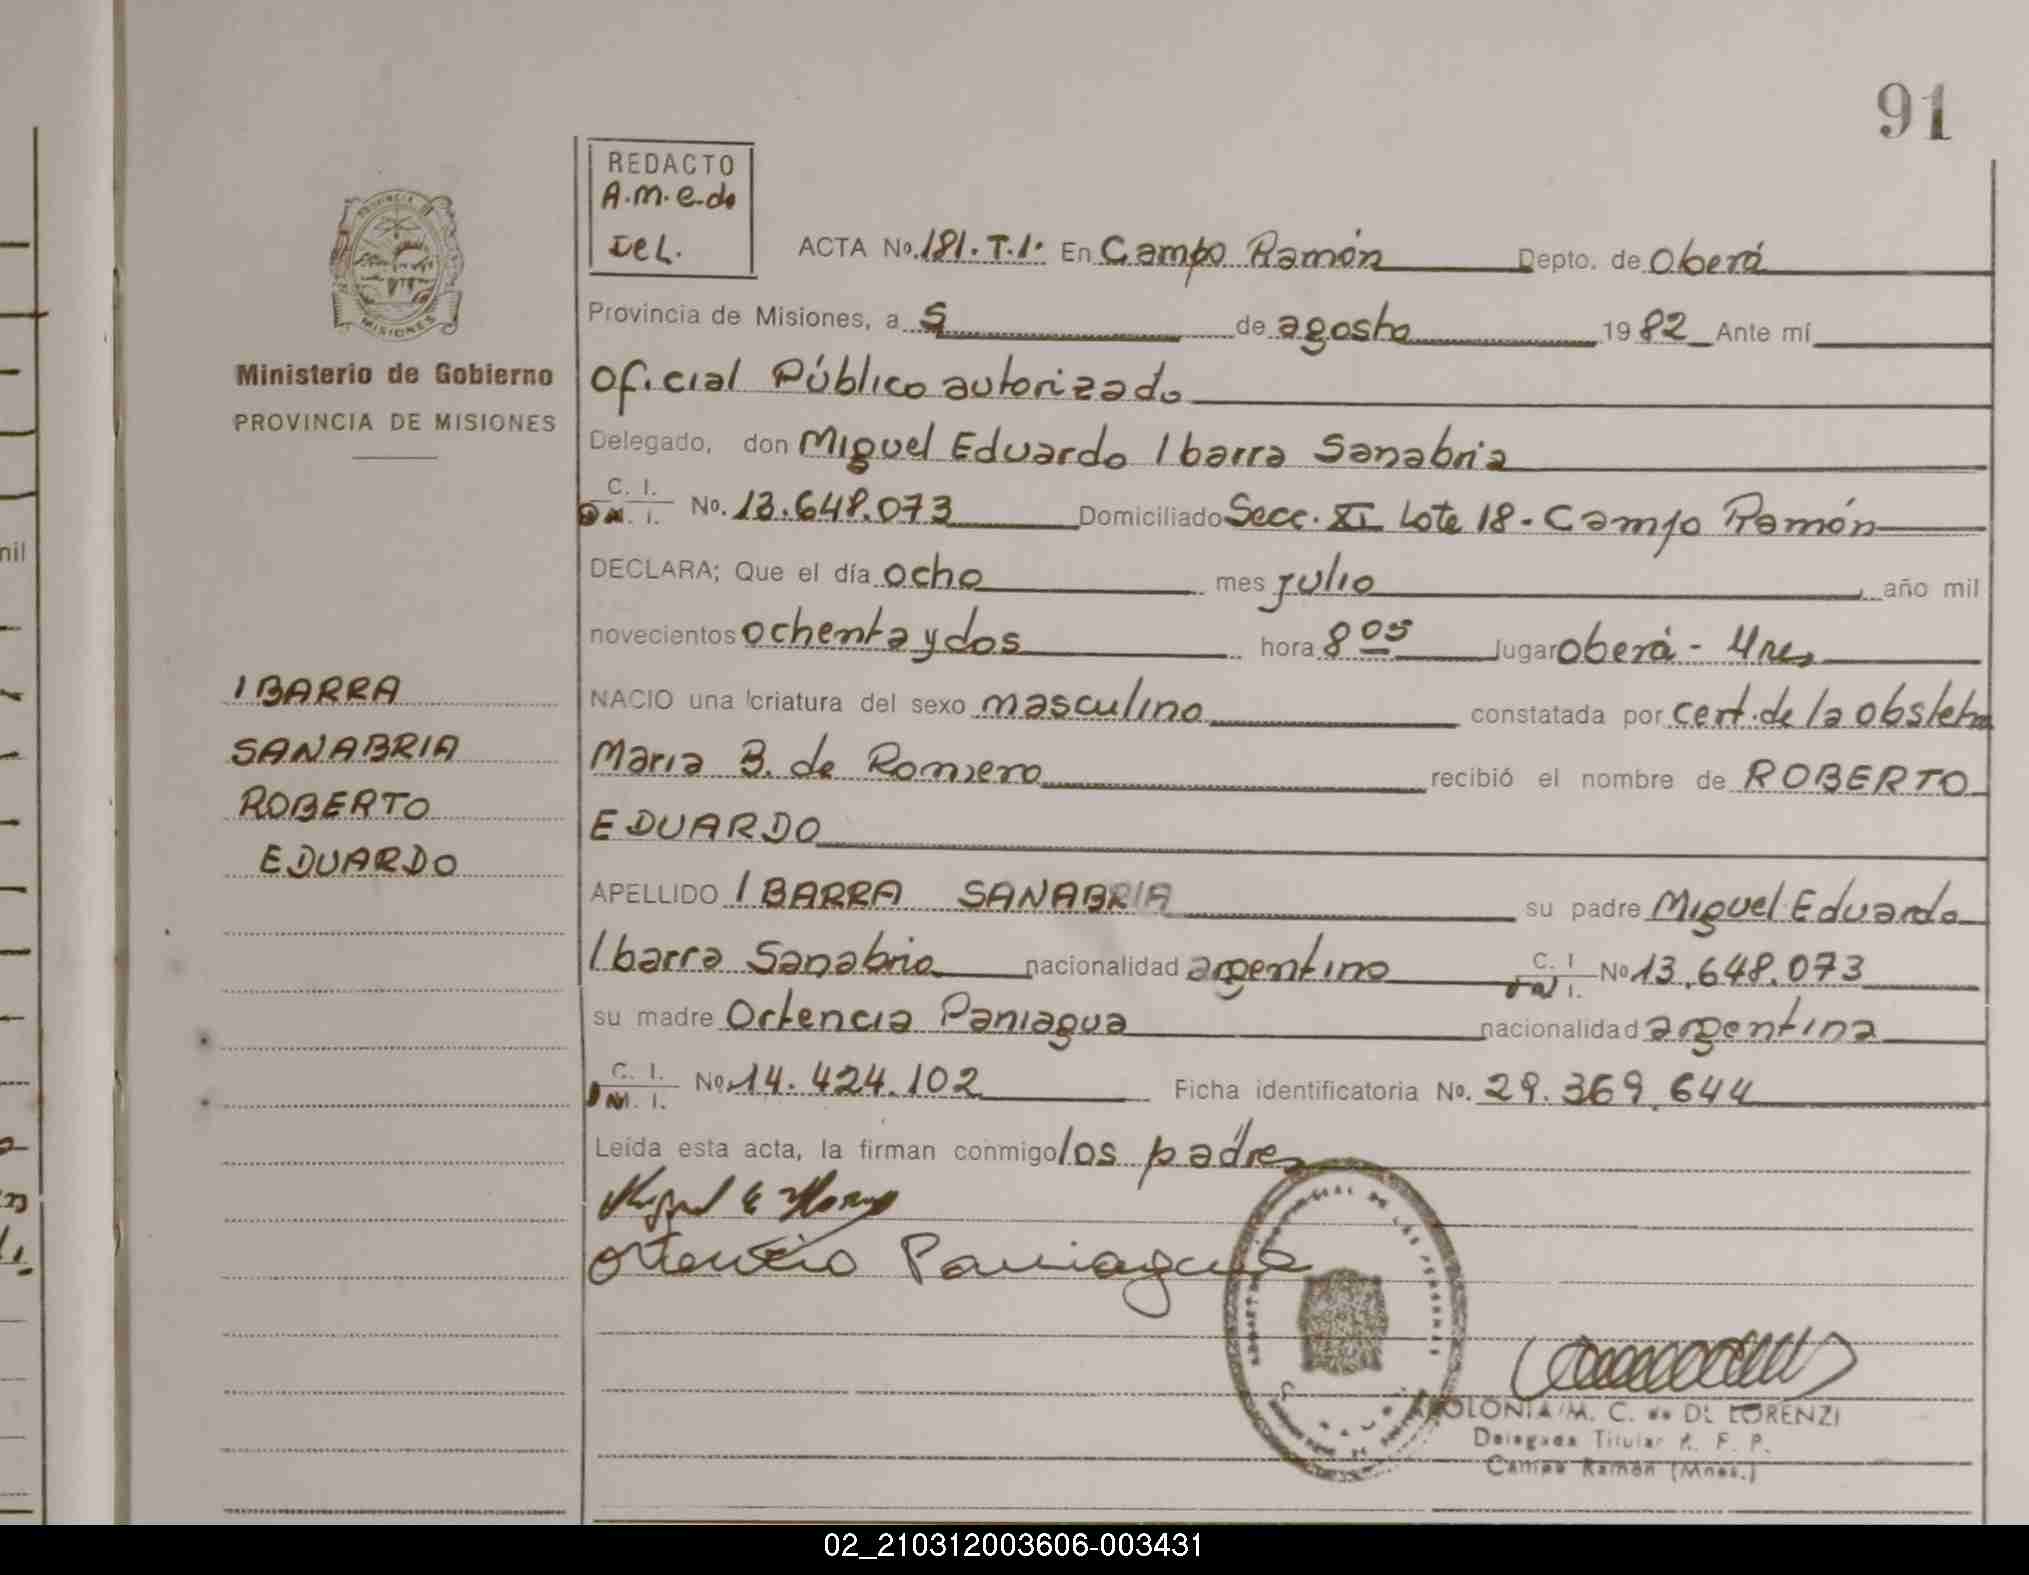 91
REDACTO
A.M.C. de
De L.
ACTA No. 181.T.1. En Campo Ramón Depto. de Oberá
Provincia de Misiones, a 5 de agosto 1982 Ante mí
Oficial Público autorizado
Delegado, don Miguel Eduardo Ibarra Sanabria
C. I. No. 13.648.073 Domiciliado Secc. XI Lote 18 - Campo Ramón
DECLARA; Que el día ocho mes julio año mil
novecientos ochenta y dos hora 8 05 lugar Oberá - Mnes
NACIO una criatura del sexo masculino constatada por cert. de la obstetra
Maria B. de Romero recibió el nombre de ROBERTO
EDUARDO
APELLIDO IBARRA SANABRIA su padre Miguel Eduardo
Ibarra Sanabria nacionalidad argentino C. I No 13.648.073
su madre Ortencia Paniagua nacionalidad argentina
C. I. No. 14.424.102 Ficha identificatoria No. 29.369.644
Leída esta acta, la firman conmigo los padres
Ortencia Paniagua
APOLONIA M. C. de DE LORENZI
Delegada Titular R. P. P.
Campo Ramón (Mnes.)
PROVINCIA DE
MISIONES
Ministerio de Gobierno
PROVINCIA DE MISIONES
IBARRA
SANABRIA
ROBERTO
EDUARDO
mil
02_210312003606-003431